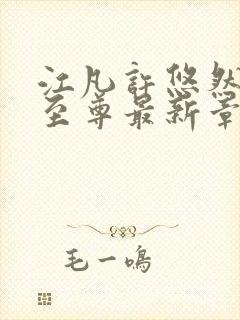 江凡許悠然
至尊最新章
毛一鳴